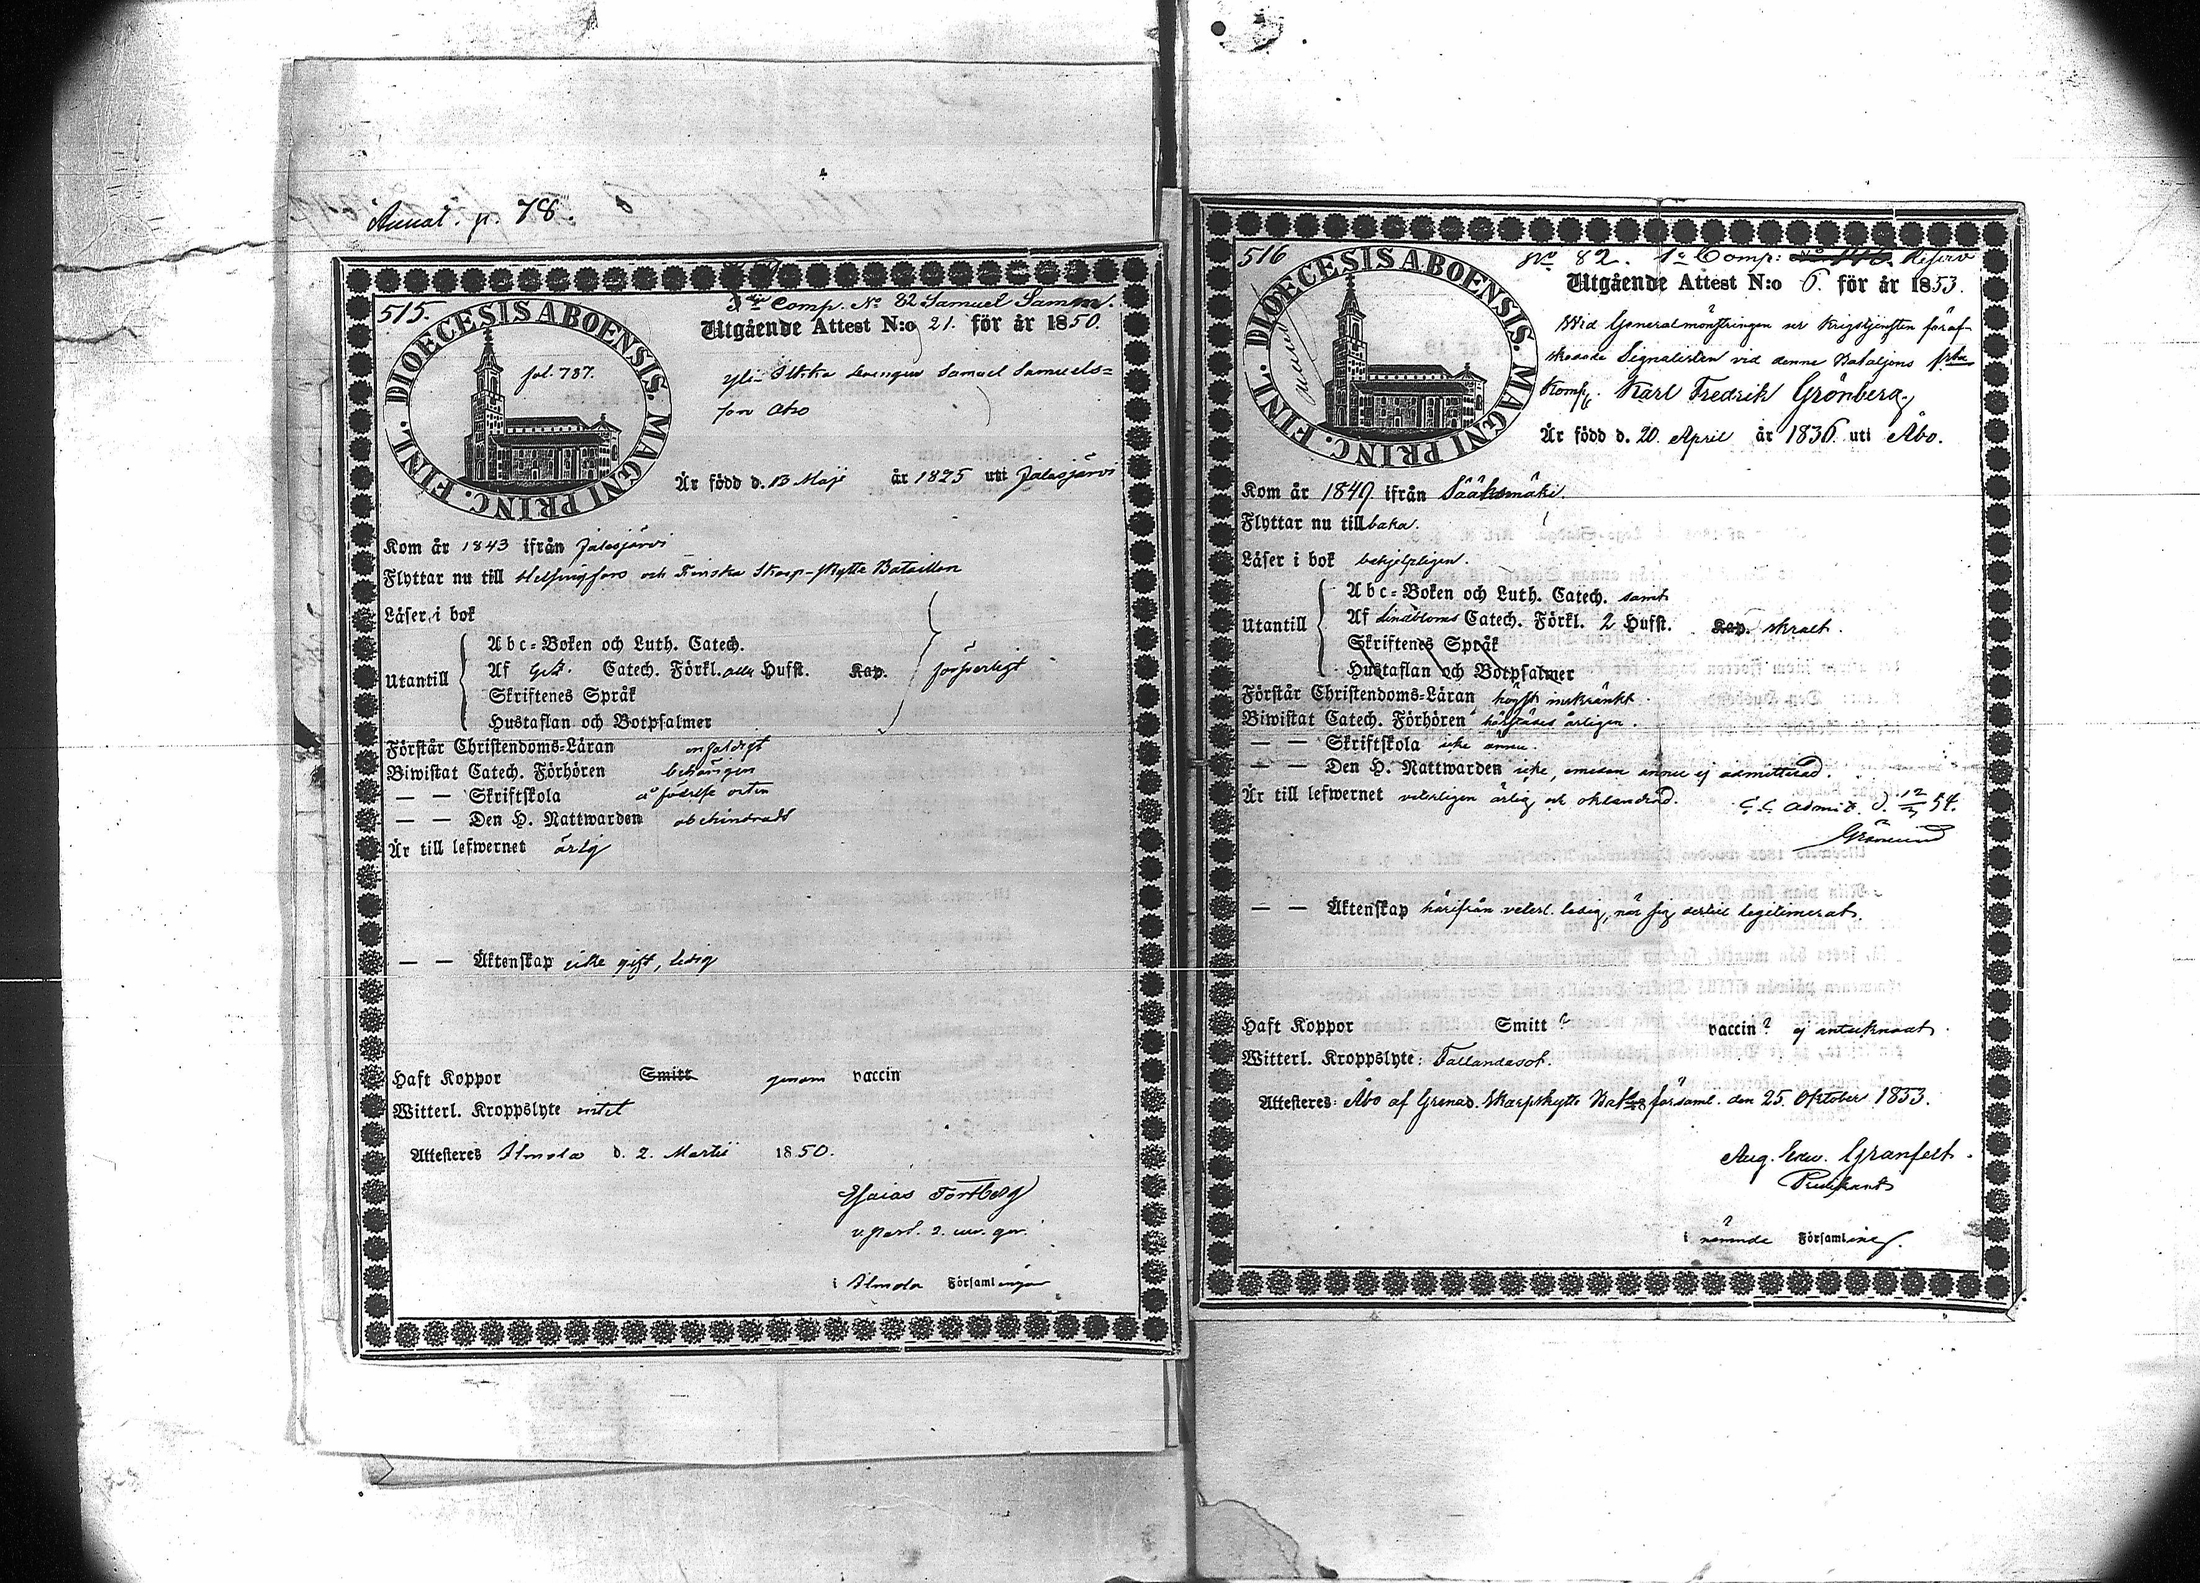 Annot. p. 78.
515.
DIOECESIS ABOENSIS. MAGNI PRINC. FINL.
fol 787.
Comp. No 82 Samuel Samm.
Utgående Attest N:o 21. för år 1850.
Yli Ilkka drengen Samuel Samuels=
son Aho
Är född d. 13 Maji år 1825 uti Jalasjärvi
Kom år 1843 ifrån Jalasjärvi
Flyttar nu till Helsingfors och Finska Skarp-skytte Bataillon
Läser i bok
Utantill
Abc-Boken och Luth. Catech.
Af Catech. Förkl. alla Hufst. Kap. försvarligt
Skriftenes Språk
Hustaflan och Botpsalmer
Förstår Christendoms-Läran enfaldigt
Biwistat Catech. Förhören behörigen
— — Skriftskola å födelse orten
— — Den H. Nattwarden obehindradt
Är till lefwernet ärlig
— — Äktenskap icke gift, ledig
Haft Koppor Smitt genom vaccin
Witterl. Kroppslyte intet
Attesteres Ilmola d. 2. Martii 1850.
Esaias Forsberg
v. past.
i Ilmola Församlingar
516
No 82. 1e Comp: Reserv
DIOECESIS ABOENSIS. MAGNI PRINC. FINL.
Utgående Attest N:o 6. för år 1853.
Wid Generalmönstringen ur Krigstjensten föraf-
skedade Signalisten vid denne Bataljons första
Komp. Karl Fredrik Grönberg,
Är född d. 20. April år 1836. uti Åbo.
Kom år 1849. ifrån Sääksmäki.
Flyttar nu tillbaka.
Läser i bok behjelpligen.
Utantill
Abc-Boken och Luth. Catech. samt
Af Lindbloms Catech. Förkl. 2 Hufst. Kap. skralt.
Skriftenes Språk
Hustaflan och Botpsalmer
Förstår Christendoms-Läran högst inskränkt.
Biwistat Catech. Förhören härstädes årligen.
— — Skriftskola icke ännu.
— — Den H. Nattwarden icke, emedan ännu ej admitterad.
Är till lefwernet veterligen ärlig och oklandrad. admit. d. 12/3 54.
— — Äktenskap härifrån veterl. ledig, när sig dertill legitimerat.
Haft Koppor Smitt? vaccin? ej antecknadt.
Witterl. Kroppslyte: Fallandesot.
Attesteres: Åbo af Grenad. Skarpskytte Bat:s församl. den 25. Oktober 1853.
Aug. Edw. Granfelt.
Predikant
i nämnde Församling.